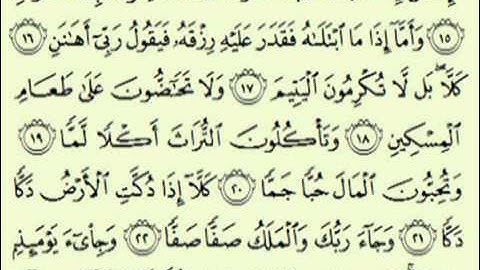 ١٥ وَأَمَّآ إِذَا مَا ٱبْتَلَىٰهُ فَقَدَرَ عَلَيْهِ رِزْقَهُۥ فَيَقُولُ رَبِّىٓ أَهَٰنَنِ ١٦
كَلَّا ۖ بَل لَّا تُكْرِمُونَ ٱلْيَتِيمَ ١٧ وَلَا تَحَٰٓضُّونَ عَلَىٰ طَعَامِ
ٱلْمِسْكِينِ ١٨ وَتَأْكُلُونَ ٱلتُّرَاثَ أَكْلًا لَّمًّا ١٩
وَتُحِبُّونَ ٱلْمَالَ حُبًّا جَمًّا ٢٠ كَلَّآ إِذَا دُكَّتِ ٱلْأَرْضُ دَكًّا
دَكًّا ٢١ وَجَآءَ رَبُّكَ وَٱلْمَلَكُ صَفًّا صَفًّا ٢٢ وَجِا۟ىٓءَ يَوْمَئِذٍۭ